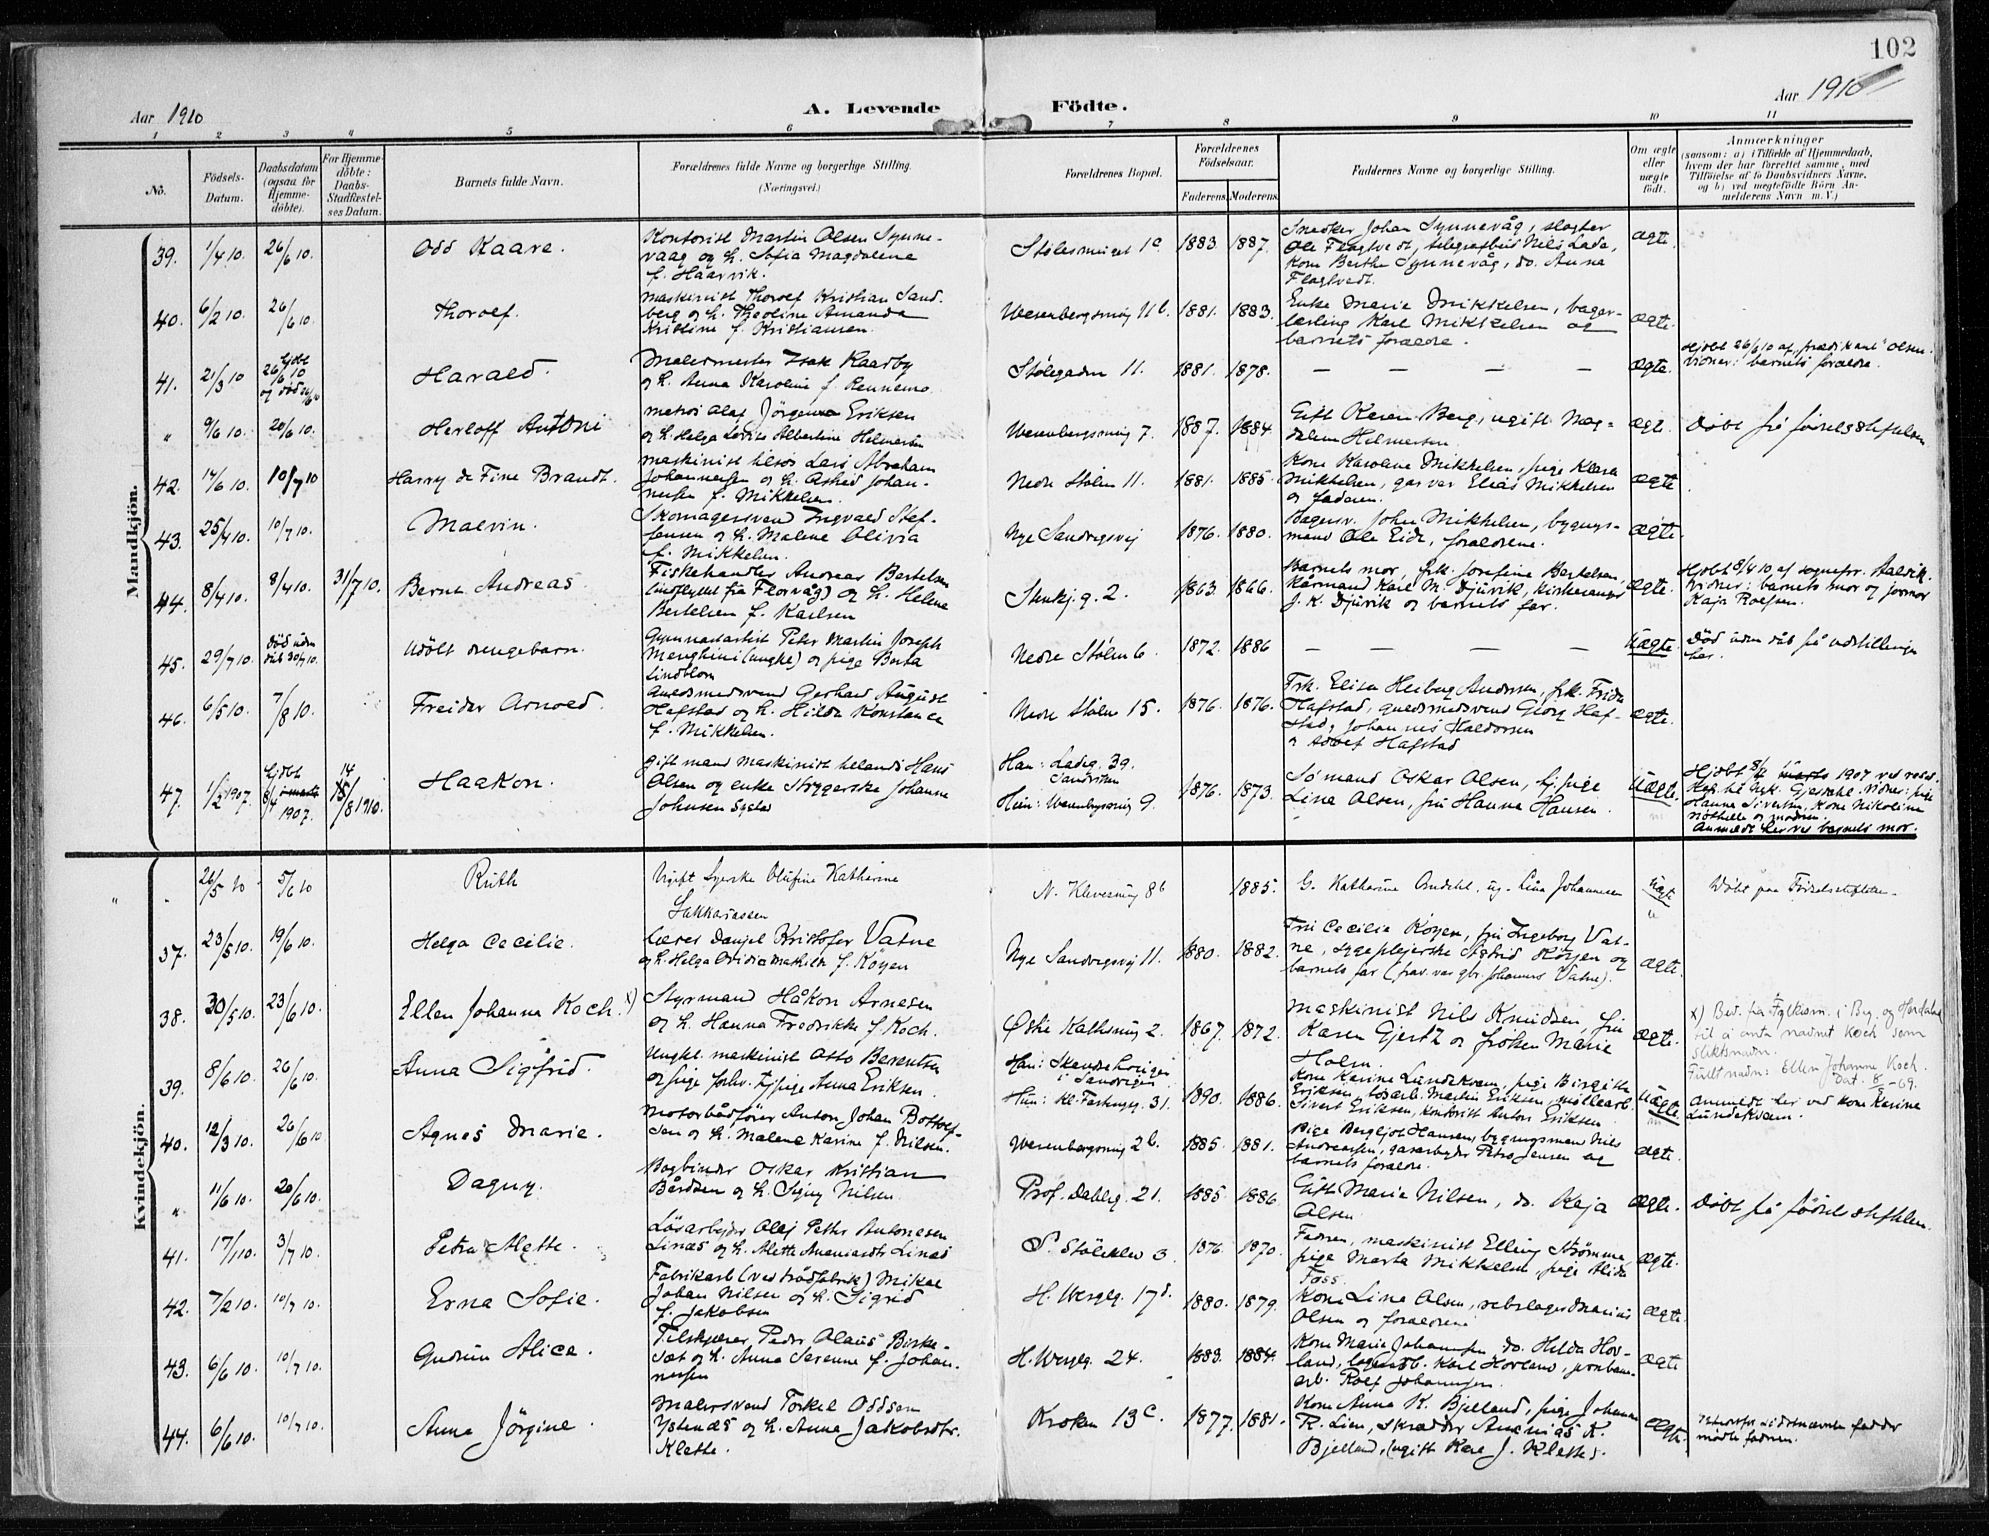 102
Aar 1910
A. Levende Födte.
Aar 1910
1 2 3 4 5 6 7 8 9 10 11
No.
Födsels-Datum.
Daabsdatum (ogsaa for Hjemme-döbte).
For Hjemme-döbte: Daabs-Stadfæstel-ses Datum.
Barnets fulde Navn.
Forældrenes fulde Navne og borgerlige Stilling.
(Næringsvei.)
Forældrenes Bopæl.
Forældrenes Födselsaar.
Faderens. Moderens.
Faddernes Navne og borgerlige Stilling.
Om ægte eller uægte födt.
Anmærkninger
(saasom: a) i Tilfælde af Hjemmedaab,
hvem der har forrettet samme, med
Tilföielse af to Daabsvidners Navne,
og b) ved uegtefödte Börn An-
melderens Navn m. V.)
Mandkjön.
39. 1/4 10. 26/6 10. Odd Kaare. Kontorist Martin Olsen Synne-
vaag og h. Sofia Magdalena
f. Haarvik.
1883 1887. Snedker Johan Synnevåg, slagter
Ole Flagtvedt, telegrafbud Nils Lada,
Kone Berthe Synnevåg, do. Anna
Flagtvedt.
ægte.
40. 6/2 10. 26/6 10. Thorolf. Maskinist Thorolf Kristian Sand-
berg og h. Theoline Amanda
Kristine f. Kristiansen.
Wesenbergsmug 11b. 1881. 1883. Enke Marie Mikkelsen, bager-
lærling Karl Mikkelsen og
barnets forældre.
ægte.
41. 21/3 10 hjdbt 26/6 10 Harald. Malermester Isak Kaarby
og h. Anna Karoline f. Rennemo.
Stølegaden 11. 1881. 1878. — — — —
ægte. Hjdbt 26/6 10 af "prædikant" Olsen.
Vidner: barnets forældre.
" 9/6 10. 20/6 10. Herloff Antoni Matros Olaf Jörgen Eriksen
og h. Helga Lovise Albertine Helmersen
Wesenbergsmug 7. 1887. 1884. Gift Karen Berg, ugift Mag-
dalene Helmersen.
ægte. Døbt på fødselsstiftelsen.
42. 17/6 10. 10/7 10 Harry de Fine Brandt. Maskinist tilsøs Lars Abraham
Johannesen og h. Astrid Johan-
nesen f. Mikkelsen.
Nedre Stølen 11. 1881. 1885. Kone Karoline Mikkelsen, pige Klara
Mikkelsen, garver Elias Mikkelsen
og faderen.
ægte.
43. 25/4 10. 10/7 10. Malvin. Skomagersvend Ingvald Stef-
fensen og h. Malene Olivia
f. Mikkelsen.
Nye Sandvigsvej 1876. 1880. Bagersv. John Mikkelsen, bygnings-
mand Ole Eide, forældrene.
ægte.
44. 8/4 10. 8/4 10. 31/7 10. Bernt Andreas Fiskehandler Andreas Bertelsen
(indflyttet fra Florvåg) og h. Helene
Bertelsen f. Karlsen
Stenkj.g. 2. 1863. 1866. Barnets mor, frk. Josefine Bertelsen,
Kårmand Karl M. Djuvik, kirkesanger
J. K. Djuvik og barnets far.
ægte. Hjdbt 8/4 10 af sognepr. Aalvik.
Vidner: barnets mor og jormor
Kaja Rolfsen.
45. 29/7 10. Död uden dåb 30/7 10. Udöbt drengebarn. Gymnastartist Peter Martin Joseph
Menghini (ungke) og pige Berta
Lindblom
Nedre Stølen 6. 1872. 1886 — — — —
Uægte. Död uden dåb på udstillingen
her.
46. 6/5 10. 7/8 10. Freidar Arnold. Guldsmedsvend Gerhard August
Hafstad og h. Hilda Konstance
f. Mikkelsen.
Nedre Stølen 15. 1876. 1876. Frk. Elisa Heiberg Andersen, frk. Frida
Hafstad, guldsmedsvend Georg Haf-
stad, Johannes Haldorsen
og Adolf Hafstad
ægte.
47. 1/2 1907. hjdbt 8/4 1907. 14/8 1910. Haakon. Gift mand maskinist tillands Hans
Olsen og enke Strygerske Johanne
Johnsen
Han: Ladeg. 39.
Sandviken
Hun: Wesenbergsmug 9. 1876. 1873. Sömand Oskar Olsen, tj.pige
Lina Olsen, fru Hanna Hansen.
Uægte. Hjdbt 8/4 1907
Hanna Sivertsen, Kone Nikoline
og moderen.
Anmeldt her ved barnets mor.
Kvindekjön.
" 26/5 10 5/6 10 Ruth Ugift Syerske Olufine Katharine
Sakkariassen
N. Klevesmug 8b 1885. G. Katharine Amdahl, ug. Lina Johannesen
Uægte Döbt paa Födselsstiftelsen
37. 23/5 10. 19/6 10. Helga Cecilie. Lærer Danjel Kristofer Vatne
og h. Helga Ovidia Mathilde f. Köyen
Nye Sandvigsvej 11. 1880. 1882. Fru Cecilia Köyen, fru Ingeborg Vat-
ne, sygeplejerske Astrid Köyen og
barnets far (frav. var gbr. Johannes Vatne).
ægte.
38. 30/5 10. 23/6 10. Ellen Johanna Koch. x) Styrmand Håkon Arnesen
og h. Hanna Fredrikke f. Koch.
Østre Kathsmug 2. 1867. 1872. Maskinist Nils Knudsen, fru
Karen Gjertz og fröken Marie
Holm.
ægte. x) Bev. fra Fylkesm. i Bg. og Hordaland
til å anta navnet Koch som
slektsnavn.
Fullt navn: Ellen Johanne Koch.
Dat. 8/5 -69.
39. 8/6 10. 26/6 10. Anna Sigfrid. Ungkl. maskinist Otto Berentsen
og pige forhv. tj.pige Anna Eriksen.
Han: Skandsehougen
i Sandvigen
Hun: Kl. Farhusg. 31. 1890. 1886. Kone Karine Lundekvam, pige Birgitte
Eriksen, løsarb. Martin Eriksen, möllearb.
Sivert Eriksen, kontorist Anton Eriksen.
Uægte Anmeldt her ved kone Karine
Lundekvam.
40. 12/3 10. 26/6 10 Agnes Marie. Motorbådförer Anton Johan Bottolf-
sen og h. Malene Karine f. Nilsen.
Wesenbergsmug 2b. 1885. 1881. Pige Bergljot Hansen, bygningsmand Nils
Andreassen, gasarbejder Petro Jensen og
barnets forældre.
ægte.
" 11/6 10. 20/6 10. Dagny. Bogbinder Oskar Kristian
Bårdsen og h. Signy Nilsen.
Prof. Dahlsg. 21. 1885. 1886 Gift Marie Nilsen, do. Kaja
Olsen.
ægte. Döbt på födselsstiftelsen.
41. 17/1 10. 3/7 10. Petra Alette. Lösarbejder Olaf Petter Antonesen
Linås og h. Alette Ananiasdtr Linås
S. Stölekler 3. 1876. 1870. Faderen, maskinist Elling Strömme,
pige Marta Mikkelsen, pige Alida
Foss.
ægte.
42. 7/2 10. 10/7 10. Erna Sofie. Fabrikarb (ved trådfabrik) Mikal
Johan Nilsen og h. Sigrid
f. Jakobsen
H. Wergelg. 17d. 1880. 1879. Kone Lina Olsen, rebslager Marius
Olsen og forældrene
ægte.
43. 6/6 10. 10/7 10. Gudrun Alice. Tilskjærer Peder Olaus Birke-
sæt og h. Anna Serenne f. Johan-
nesen
H. Wergelg. 24. 1883. 1884. Kone Marie Johannesen, do. Hilda Hov-
land, lagerarb. Karl Hovland, jernbane-
arb. Rolf Johannesen.
ægte
44. 6/6 10. 10/7 10. Anna Jörgine. Malersvend Torkel Oddsen
Ystenæs og h. Anna Jakobsdtr.
Klette.
Kroken 13c. 1877. 1881. Kone Anna K. Bjelland, pige Johanna
R. Lien, skrædder Ananias K.
Bjelland, (ugift Karl J. Klette).
ægte. sidstnævnte fadder
mödte faderen.